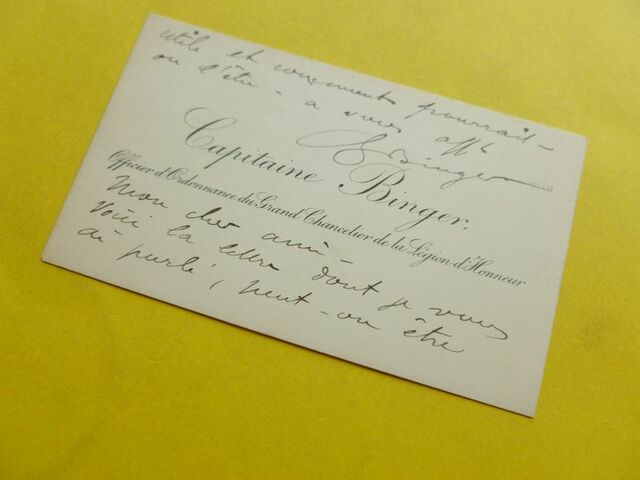 utile et comment pourrait-
on l'être - à vous affé
GBinger
Capitaine Binger,
Officier d'Ordonnance du Grand Chancelier de la Légion d'Honneur
Mon cher ami -
Voici la lettre dont je vous
ai parlé, peut-on être